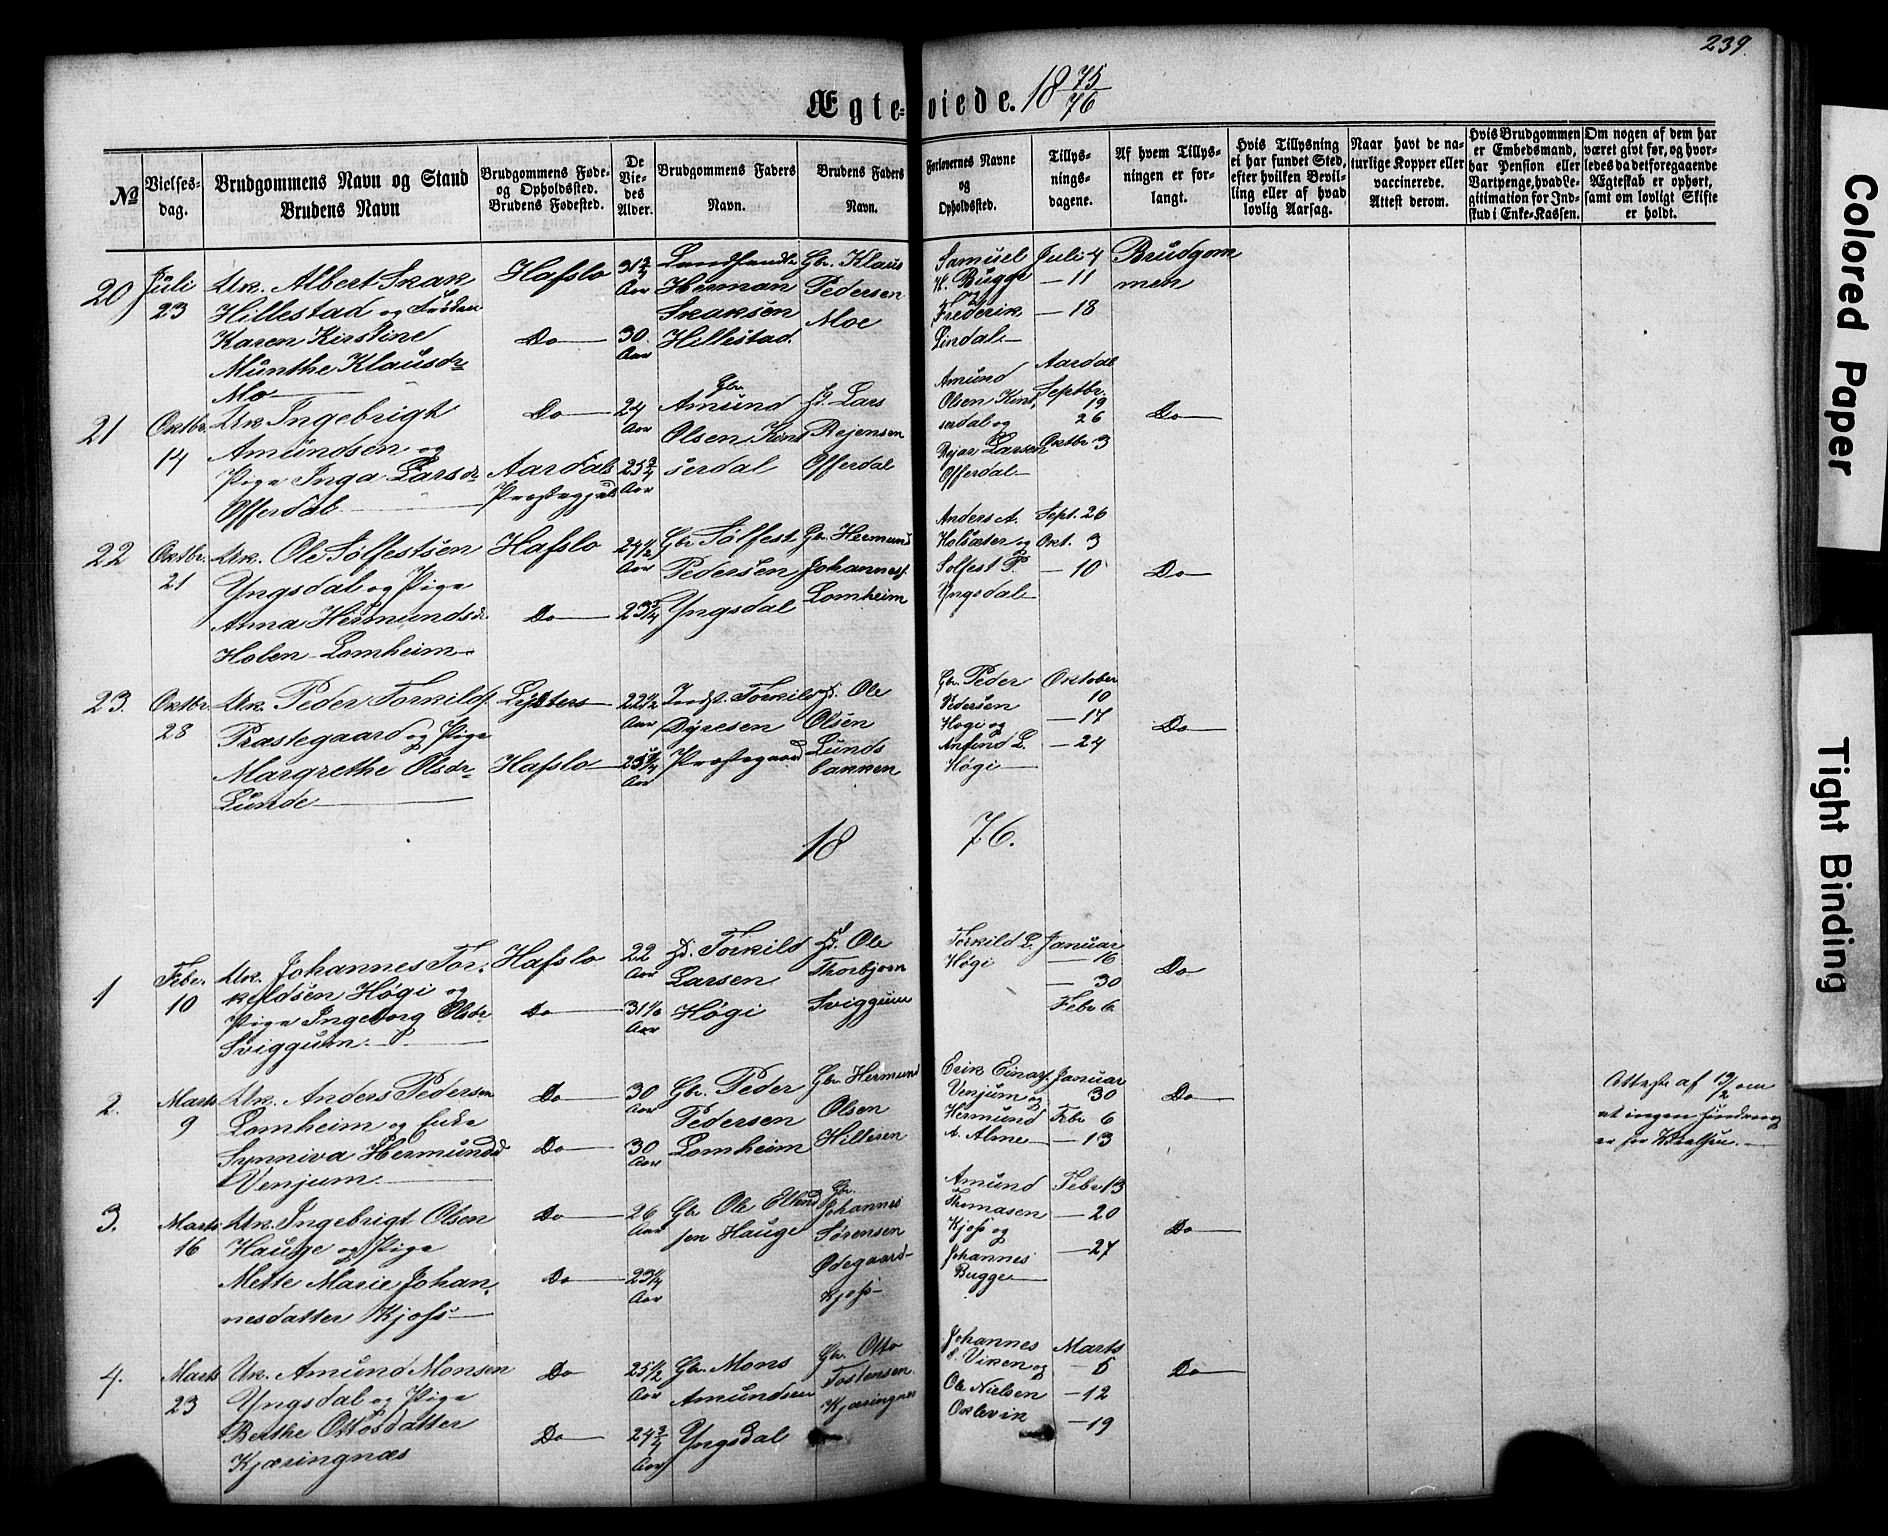 239.
Ægte-viede. 18 75/76
№
Vielses-dag.
Brudgommens Navn og Stand
Brudens Navn
Brudgommens Føde- og Opholdssted.
Brudens Fødested.
De Vie-des Alder.
Brudgommens Faders Navn.
Brudens Faders Navn.
Forlovernes Navne og Opholdssted.
Tillys-nings-dagene.
Af hvem Tillys-ningen er for-langt.
Hvis Tillysning ei har fundet Sted, efter hvilken Bevil-ling eller af hvad lovlig Aarsag.
Naar havt de na-turlige Kopper eller vaccinerede. Attest derom.
Hvis Brudgommen er Embedsmand, har Pension eller Vartpenge, hvad Le-gitimation for Ind-skud i Enke-Kassen.
Om nogen af dem har været givt før, og hvor-ledes da det foregaaende Ægteskab er ophørt, samt om lovligt Skifte er holdt.
20 Juli 23
Uk. Albert Skak
Hillestad og
Karen Kirstine
Munthe Klausdr
Mo
Hafslo
Do
31 3/4 Aar
30 Aar
Herman
Skaksen
Hillestad.
Gbr. Klaus
Pedersen
Moe
Samuel
H. Bugge
og
Frederik
Lindal
Juli 4
— 11
— 18
Brudgom
men
21 Oktbr. 14
Uk Ingebrigt
Amundsen og
Pige Inga Larsdr
Offerdal
Do
Aardals
Præstegjeld
24 Aar
25 3/4 Aar
Gbr.
Amund
Olsen Kins
serdal
Lars
Rejersen
Offerdal
Amund
Olsen Kins
serdal og
Rejar Larsen
Offerdal
Aardal
Septbr.
19
26
Oktbr 3
Do
22 Oktbr. 21
Uk. Ole Sølfestsen
Yngsdal og Pige
Anna Hermundsdr
Holen Lomheim
Hafslo
Do
24 1/2 Aar
23 3/4
Gbr Sølfest
Pedersen
Yngsdal
Gbr. Hermund
Johannes
Lomheim
Anders A.
Holsæter og
Solfest P.
Yngsdal
Sept. 26
Okt. 3
— 10
Do
23. Oktbr. 28
Uk. Peder Torkilds
Præstegaard og Pige
Margrethe Olsdr
Lunde
Lysters
Hafslo
22 1/2 Aar
25 3/4 Aar
Indst. Torkild
Dyresen
Præstegaard
Ole
Olsen
Lunds
bakken
Gbr. Peder
Pedersen
Høgi og
Anfind L.
Høgi
Oktober
10
— 17
— 24
Do
18 76.
1 Febr. 10
Uk. Johannes Tor-
kildsen Høgi og
Pige Ingeborg Olsdr
Sviggum
Hafslo
Do
22 Aar
31 Aar
Torkild
Larsen
Høgi
Ole
Thorbjørn
Sviggum
Torkild L.
Høgi
Januar
— 16
— 30
Febr 6
Do
2. Marts 9
Uk. Anders Pedersen
Lomheim og Enke
Synniva Hermundsd
Venjum
Do
Do
30 Aar
30 Aar
Gbr. Peder
Pedersen
Lomheim
Gbr. Hermund
Olsen
Hilleren
Erik Einars
Venjum og
Hermund
A. Alme
Januar
30
Febr 6
— 13
Do
Attest af 19/2 om
at ingen Hindring
er for Vielsen.
3. Marts 16
Uk. Ingebrigt Olsen
Hauge og Pige
Mette Marie Johan-
nesdatter Kjofs
Do
Do
26 Aar
23 1/4 Aar
Gbr Ole Ellend
sen Hauge
Gbr.
Johannes
Sørensen
Ødegaard
Kjofs
Amund
Thomasen
Kjofs og
Johannes
Bugge
Febr 13
— 20
— 27
Do
4. Marts 23
Uk. Amund Monsen
Yngsdal og Pige
Berthe Ottosdatter
Kjæringnæs
Do
Do
25 1/2 Aar
24 3/4 Aar
Gbr. Mons
Amundsen
Yngsdal
Gbr. Otto
Tostensen
Kjæringnæs
Johannes
Viken og
Ole Nielsen
Oklevik
Marts
— 5
— 12
— 19
Do
Colored Paper
Tight Binding